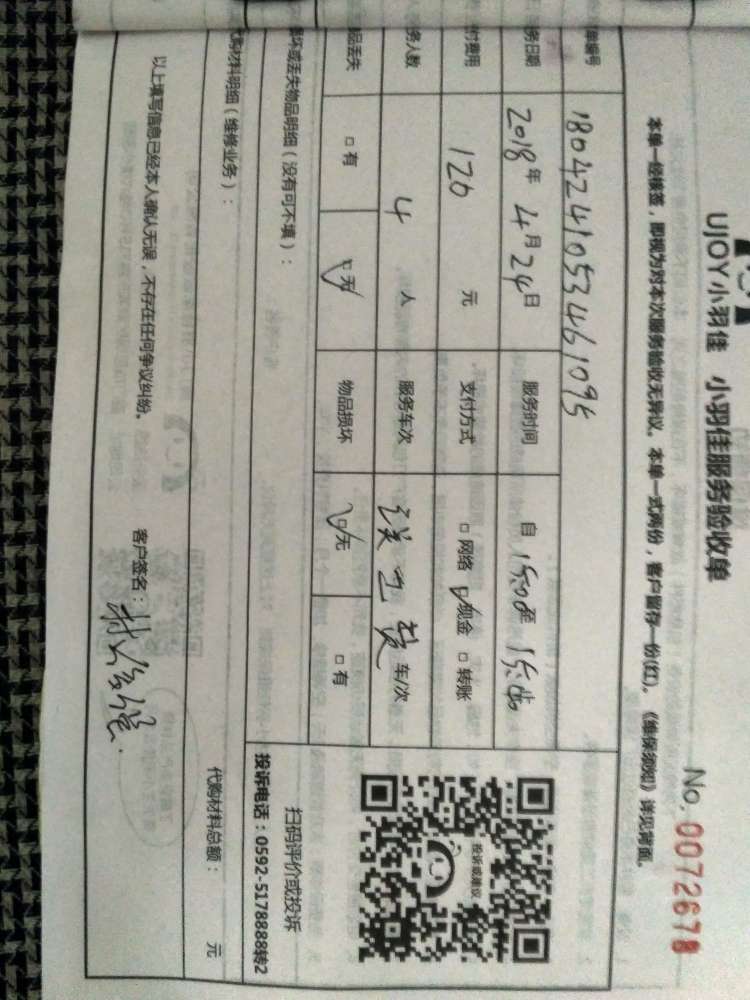 UJOY小羽佳 小羽佳服务验收单
No. 0072678
本单一经核签，即视为对本次服务验收无异议。本单一式两份，客户留存一份(红)。《维保须知》详见背面。
单编号 1804241053461095
务日期 2018年 4月24日 服务时间 自 15:00至
付费用 120 元 支付方式 □网络 ☑现金 □转账
务人数 4 人 服务车次 车/次
品丢失 □有 ☑无 物品损坏 ☑无 □有
投诉或建议
扫码评价或投诉
投诉电话：0592-5178888转2
损坏或丢失物品明细（没有可不填）：
代购材料明细（维修业务）：
代购材料总额： 元
以上填写信息已经本人确认无误，不存在任何争议纠纷。
客户签名：